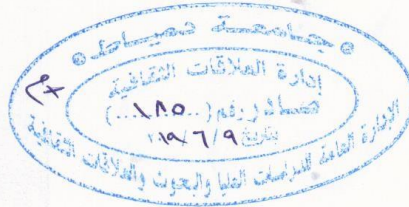 جامعة دمياط
إدارة العلاقات الثقافية
صادر رقم (..١٨٥...)
بتاريخ ٩/٦/١٩
الإدارة العامة للدراسات العليا والبحوث والعلاقات الثقافية